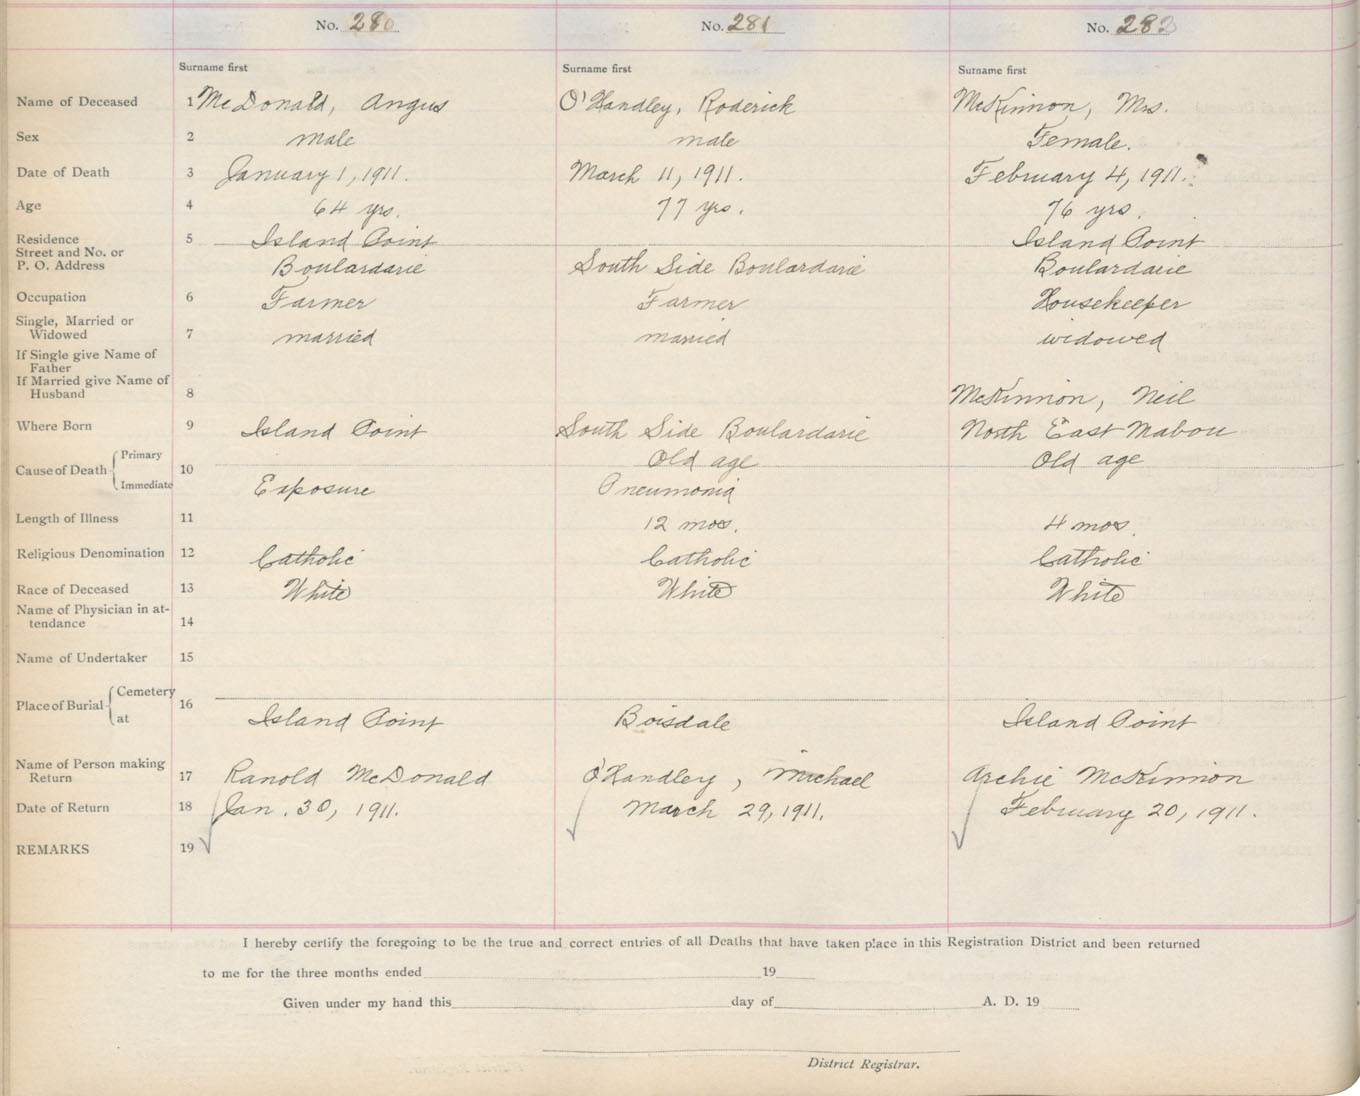 No. 280 No. 281 No. 282
Surname first Surname first Surname first
Name of Deceased 1 McDonald, Angus O'Handley, Roderick McKinnon, Mrs.
Sex 2 male male Female.
Date of Death 3 January 1, 1911. March 11, 1911. February 4, 1911.
Age 4 64 yrs. 77 yrs. 76 yrs.
Residence 5 Island Point Island Point
Street and No. or
P. O. Address Boulardarie South Side Boulardarie Boulardarie
Occupation 6 Farmer Farmer Housekeeper
Single, Married or
Widowed 7 married married widowed
If Single give Name of
Father
If Married give Name of
Husband 8 McKinnon, Neil
Where Born 9 Island Point South Side Boulardarie North East Mabou
Cause of Death Primary 10 Old age Old age
Immediate Exposure Pneumonia
Length of Illness 11 12 mos. 4 mos.
Religious Denomination 12 Catholic Catholic Catholic
Race of Deceased 13 White White White
Name of Physician in at-
tendance 14
Name of Undertaker 15
Place of Burial Cemetery 16
at Island Point Boisdale Island Point
Name of Person making
Return 17 Ranold McDonald O'Handley, Michael Archie McKinnon
Date of Return 18 Jan. 30, 1911. March 29, 1911. February 20, 1911.
REMARKS 19
I hereby certify the foregoing to be the true and correct entries of all Deaths that have taken place in this Registration District and been returned
to me for the three months ended 19
Given under my hand this day of A. D. 19
District Registrar.